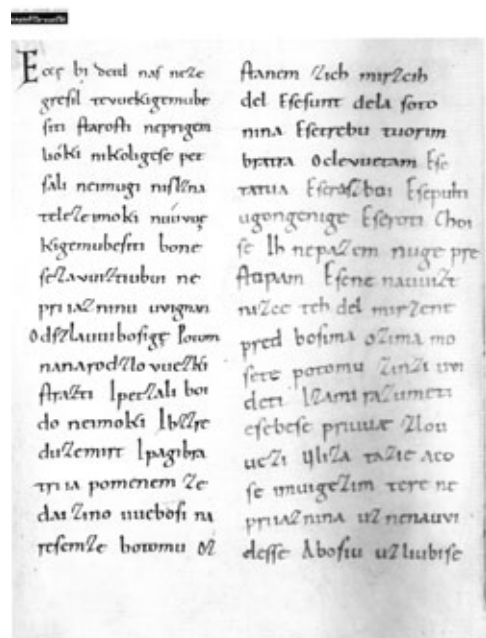 Ecce bi detd naſ neze
greſil tevuekigemube
ſiti ſtaroſti neprigem
lióki nikoligeſe pet
ſali neimugi niſlzna
teleze imoki nuúvuę
kigemubeſiti bone
ſezavuiztiubui ne
priiazninu uvignan
Odſzlauuiboſigę Potom
nanarodzlovuezki
ſtrazti Ipetzali boi
do neimoki Ibzzre
duzemirt Ipagibra
triia pomenem ze
dai zino uueboſi na
reſemze botomu oz
ſtanem zich mirzcih
del Eſeſunt dela ſoto
nina Eſetrebu tuorim
bratra Oclevuetam Eſe
tatua Eſerazboi Eſepulti
ugongenige Eſeroti Choi
ſe Ih nepazem nuge pre
ſtapam Eſene nauuizt
nizce teh del mirzene
pred boſima ozima mo
ſete potomu zinzi uvi
deti Izami razumeti
eſebeſe priuuæ zlou
uezi Uliza tazie aco
ſe imuigezim tere ne
priiaznina uznenauvi
deſſe Aboſiu uzliubiſe